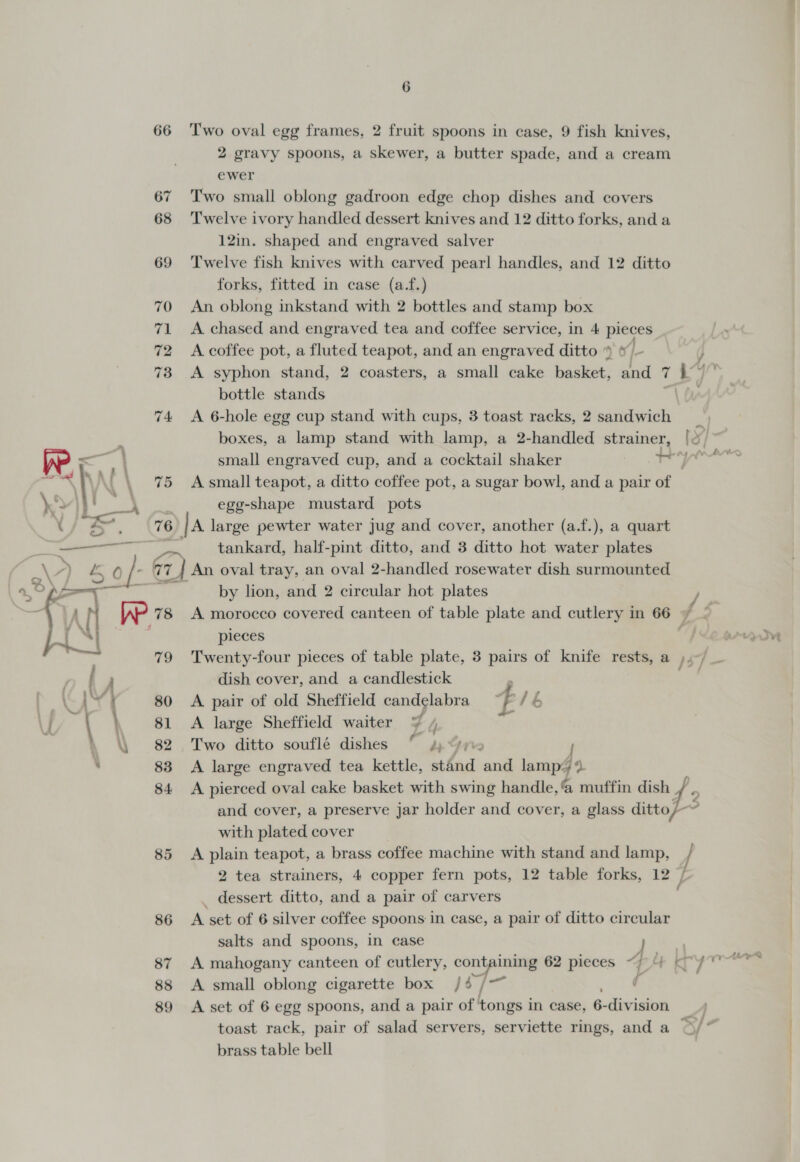 6
66 Two oval egg frames, 2 fruit spoons in case, 9 fish knives,
2 gravy spoons, a skewer, a butter spade, and a cream
ewer
67 Two small oblong gadroon edge chop dishes and covers
68 Twelve ivory handled dessert knives and 12 ditto forks, and a
12in. shaped and engraved salver
69 Twelve fish knives with carved pearl handles, and 12 ditto
forks, fitted in case (a.f.)
70 An oblong inkstand with 2 bottles and stamp box
71 A chased and engraved tea and coffee service, in 4 pieces
72 A coffee pot, a fluted teapot, and an engraved ditto
73 A syphon stand, 2 coasters, a small cake basket, and 7
bottle stands
74 A 6-hole egg cup stand with cups, 3 toast racks, 2 sandwich
boxes, a lamp stand with lamp, a 2-handled strainer,
small engraved cup, and a cocktail shaker
75 A small teapot, a ditto coffee pot, a sugar bowl, and a pair of
egg-shape mustard pots
76 A large pewter water jug and cover, another (a.f.), a quart
tankard, half-pint ditto, and 3 ditto hot water plates
77 An oval tray, an oval 2-handled rosewater dish surmounted
by lion, and 2 circular hot plates
78 A morocco covered canteen of table plate and cutlery in 66
pieces
79 Twenty-four pieces of table plate, 3 pairs of knife rests, a
dish cover, and a candlestick
80 A pair of old Sheffield candelabra
81 A large Sheffield waiter
82 Two ditto souflé dishes
83 A large engraved tea kettle, stand and lamp
84 A pierced oval cake basket with swing handle, a muffin dish
and cover, a preserve jar holder and cover, a glass ditto
with plated cover
85 A plain teapot, a brass coffee machine with stand and lamp,
2 tea strainers, 4 copper fern pots, 12 table forks, 12
dessert ditto, and a pair of carvers
86 A set of 6 silver coffee spoons in case, a pair of ditto circular
salts and spoons, in case
87 A mahogany canteen of cutlery, containing 62 pieces
88 A small oblong cigarette box
89 A set of 6 egg spoons, and a pair of tongs in case, 6-division
toast rack, pair of salad servers, serviette rings, and a
brass table bell